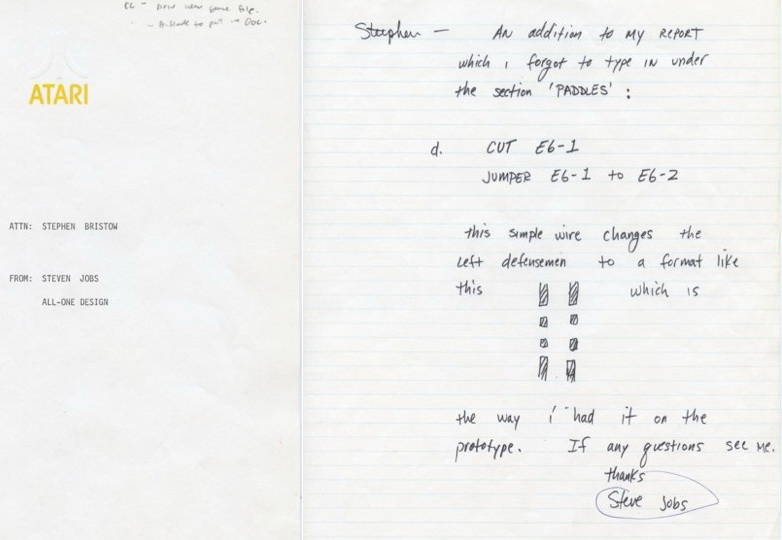 ATARI
ATTN: STEPHEN BRISTOW
FROM: STEVEN JOBS
ALL-ONE DESIGN
Steephen — AN addition to MY REPORT
which i forgot to type IN under
the section 'PADDLES' :
d. CUT E6-1
JUMPER E6-1 to E6-2
this simple wire changes the
left defensemen to a format like
this which is
the way i had it on the
prototype. If any questions see me.
thanks
Steve Jobs